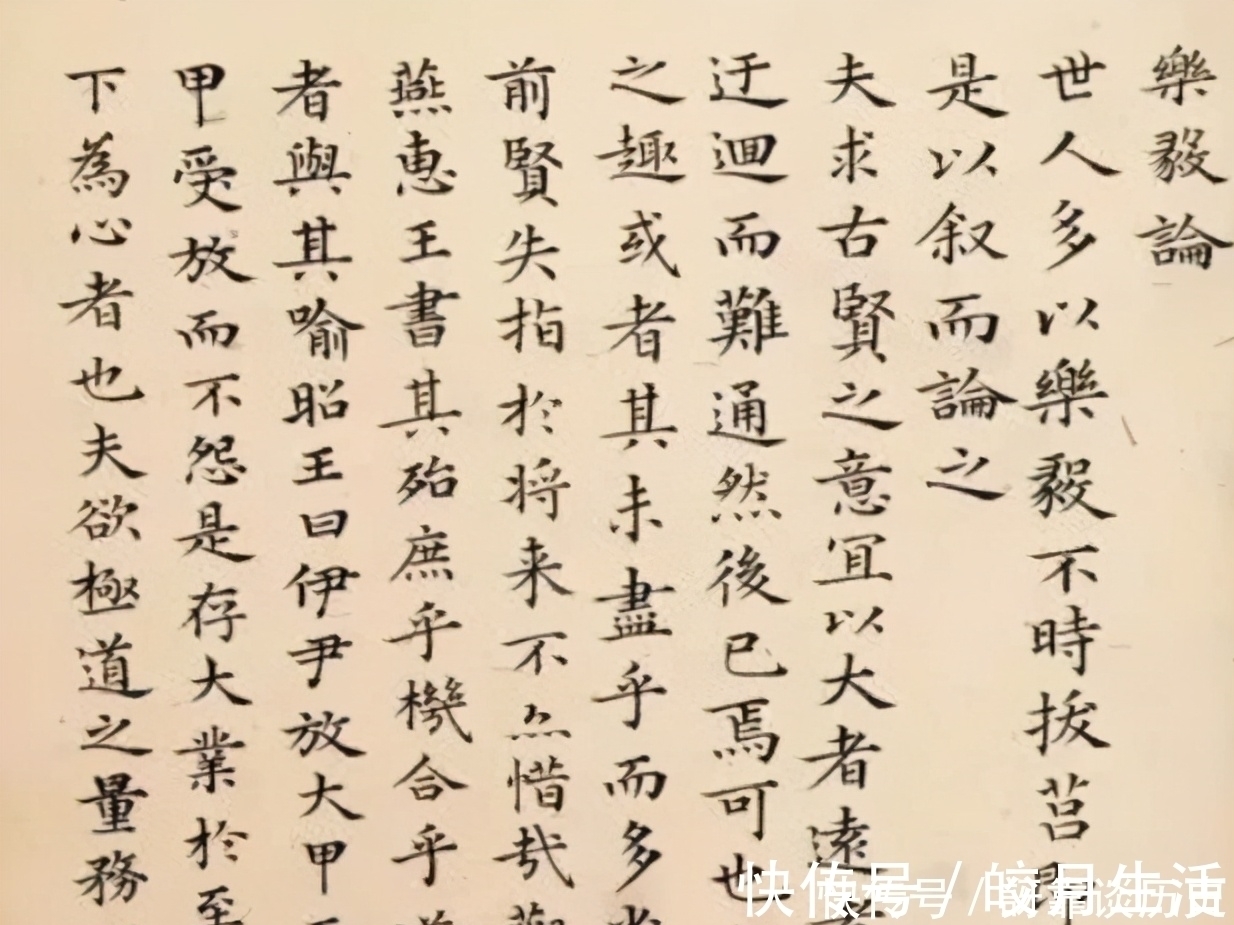 樂毅論
世人多以樂毅不時拔莒即
是以叙而論之
夫求古賢之意宜以大者遠者
迂迴而難通然後已焉可也
之趣或者其未盡乎而多
前賢失指於将来不亦惜哉觀
燕惠王書其殆庶乎機合乎道
者與其喻昭王曰伊尹放大甲
甲受放而不怨是存大業於至
下為心者也夫欲極道之量務
快传号/皎月生活